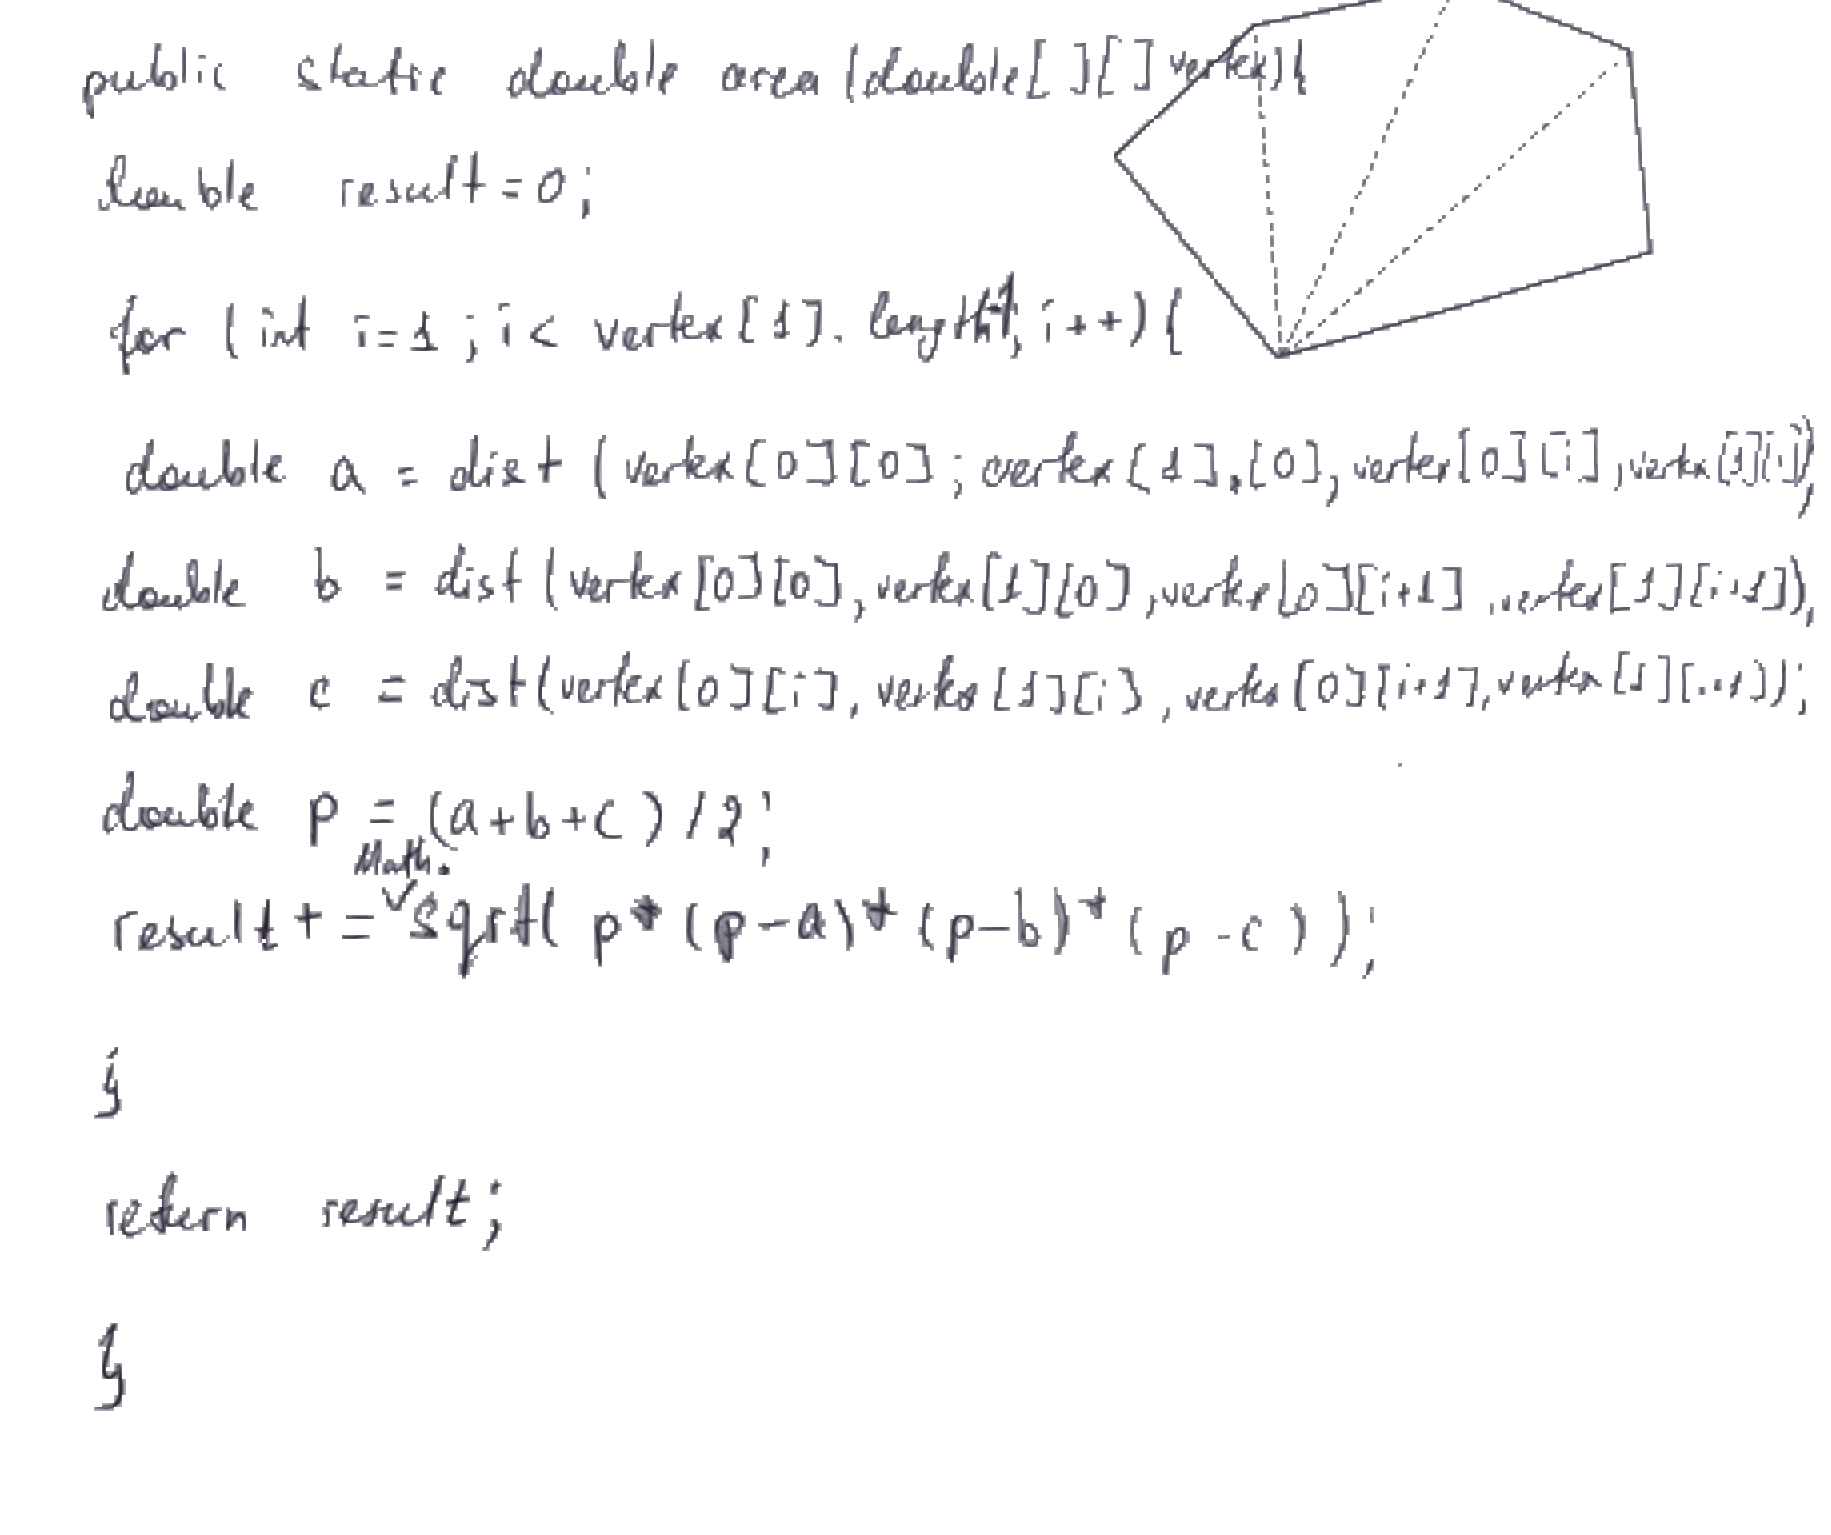 public static double area (double[ ][ ] vertex){
double result = 0;
for (int i=1 ; i < vertex[1]. length-1; i++){
double a = dist (vertex[0][0]; vertex[1].[0], vertex[0][i], vertex[1][i]);
double b = dist (vertex[0][0], vertex[1][0], vertex[0][i+1], vertex[1][i+1]);
double c = dist(vertex[0][i], vertex[1][i], vertex[0][i+1], vertex[1][i+1]);
double p = (a+b+c) / 2;
Math.
result += sqrt( p* (p-a)* (p-b)* (p-c) );
}
return result;
}